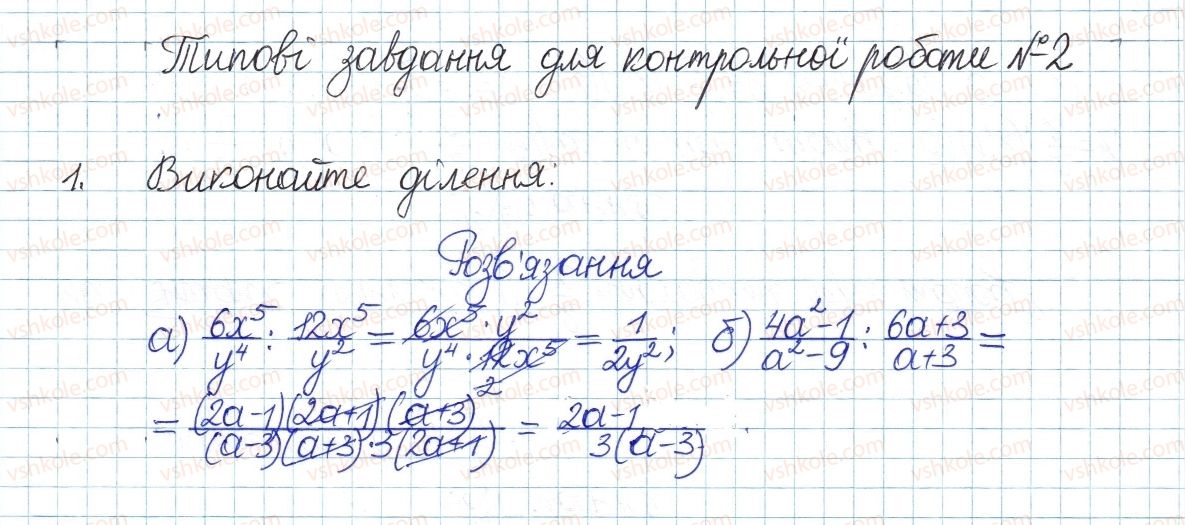 Типові завдання для контрольної роботи №2
1. Виконайте ділення:
Розв'язання
а) 6x⁵/y⁴ : 12x⁵/y² = 6x⁵·y²/y⁴·12x⁵ 2 = 1/2y²; б) 4a²-1/a²-9 : 6a+3/a+3 =
= (2a-1)(2a+1)(a+3)/(a-3)(a+3)·3(2a+1) = 2a-1/3(a-3)
vshkole.com